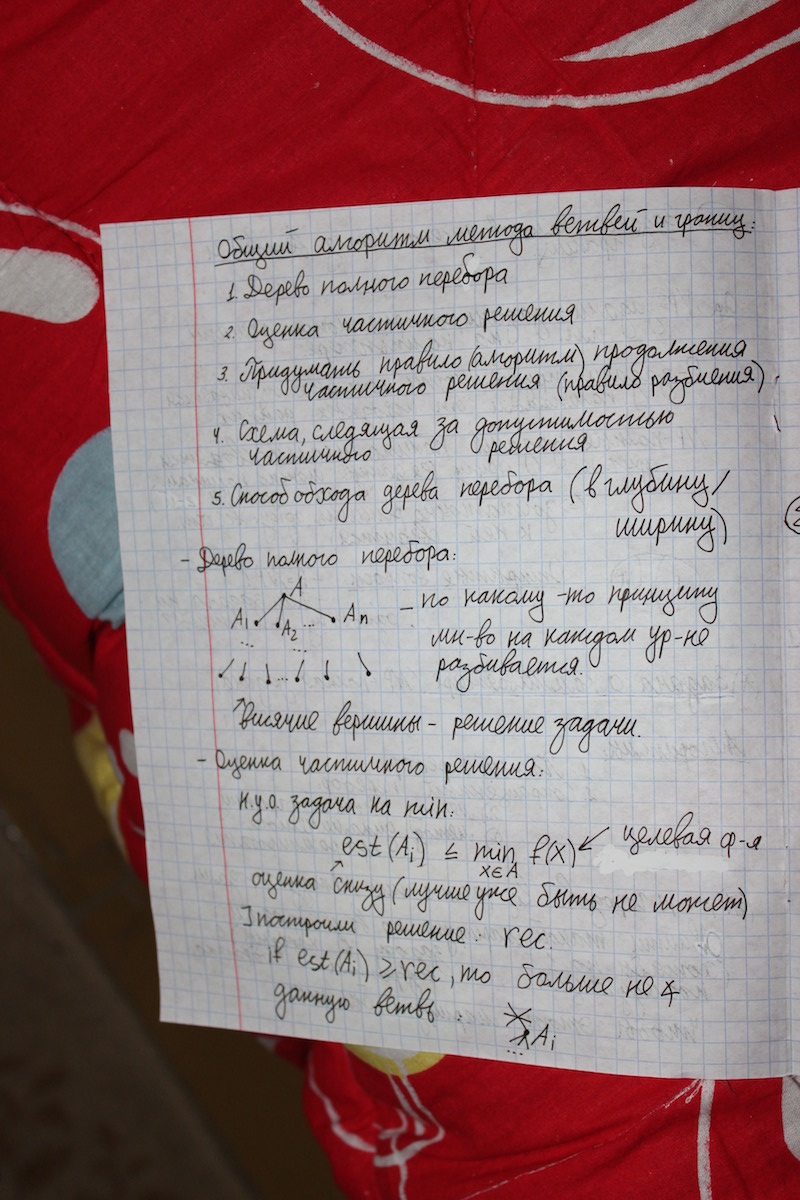 Общий алгоритм метода ветвей и границ:
1. Дерево полного перебора
2. Оценка частичного решения
3. Придумать правило (алгоритм) продолжения
частичного решения (правило разбиения)
4. Схема, следящая за допустимостью
частичного решения
5. Способ обхода дерева перебора (в глубину/
ширину)
- Дерево полного перебора:
A
A1 A2 ... An
- по какому-то принципу
мн-во на каждом ур-не
разбивается.
...
...
висячие вершины - решение задачи.
- Оценка частичного решения:
н.у.о. задача на min:
est(Ai) ≤ min f(X) ↙ целевая ф-я
X∈A
оценка снизу (лучше уже быть не может)
] построили решение: rec.
if est(Ai) ≥ rec, то больше не ∡
данную ветвь:
Ai
...